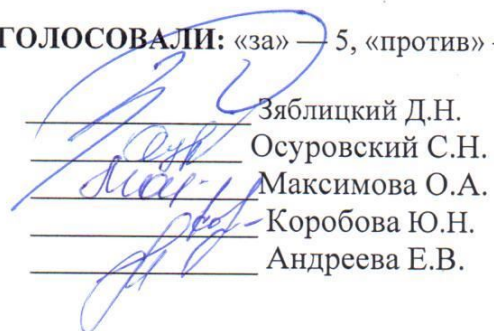 ГОЛОСОВАЛИ: «за» — 5, «против» -
Зяблицкий Д.Н.
Осуровский С.Н.
Максимова О.А.
Коробова Ю.Н.
Андреева Е.В.